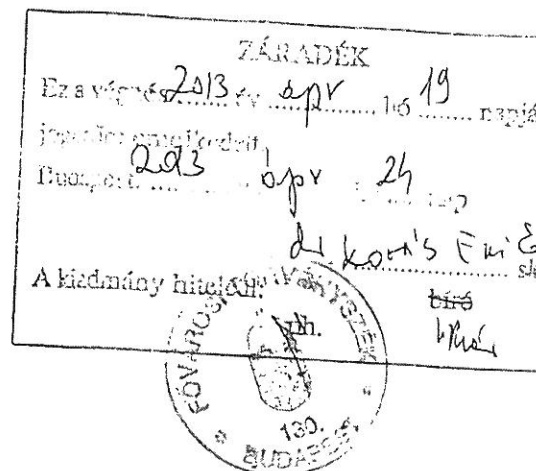 ZÁRADÉK
Ez a végzés 2013 év ápr hó 19 napjá
jogerőre emelkedett.
Budapest, 2013 ápr 24 nap
dr Kovács
bíró
A kiadmány hiteléül:
ph.
FŐVÁROSI TÖRVÉNYSZÉK
130.
BUDAPEST